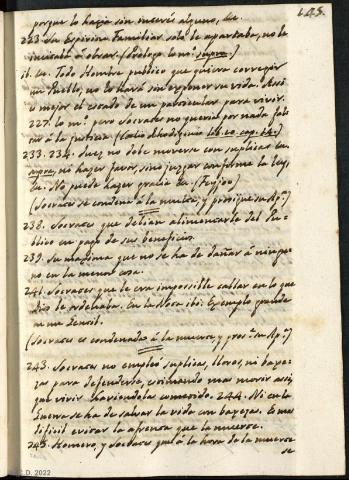 145.
porque lo hazia sin interés alguno, &c.
223. Su Espiritu Familiar solo le apartaba, no le
incitaba á obrar. (Prologo lo mº. supra.)
it. &c. Todo Hombre publico que quiera corregir
un Pueblo, no lo hará sin exponer su vida. Assi
es mejor el estado de un particular para vivir.
227. lo mº. pero Socrates no queria por nada fal-
tar á la justicia (Celio Rhodiginio lib. 10. cap. 14.)
233. 234. Juez no debe moverse con suplicas &c.
agora, no hazer favor, sino juzgar conforme la ley,
&c. No puede hazer gracia &c. (Feyjoo)
(Socrates se condena á la muerte, y prosigue su Apª.)
238. Socrates que debian alimentarle del Pu-
blico en pago de sus beneficios.
239. Su maxima que no se ha de dañar á ningu-
no en la menor cosa.
241. Socrates que le era impossible callar en lo que
Dios le ordenaba. En la Nota ibi. Exemplo grande
en un Gentil.
(Socrates es condenado á la muerte, y pros. su Apª.)
243. Socrates no empleó suplicas, lloros, ni baxe-
zas para defenderse, estimando mas morir assi,
que vivir haviendolas cometido. 244. Ni en la
Guerra se ha de salvar la vida con baxezas. Es mas
dificil evitar la afrenta que la muerte.
245. Homero, y Socrates que á la hora de la muerte
se
C.D. 2022